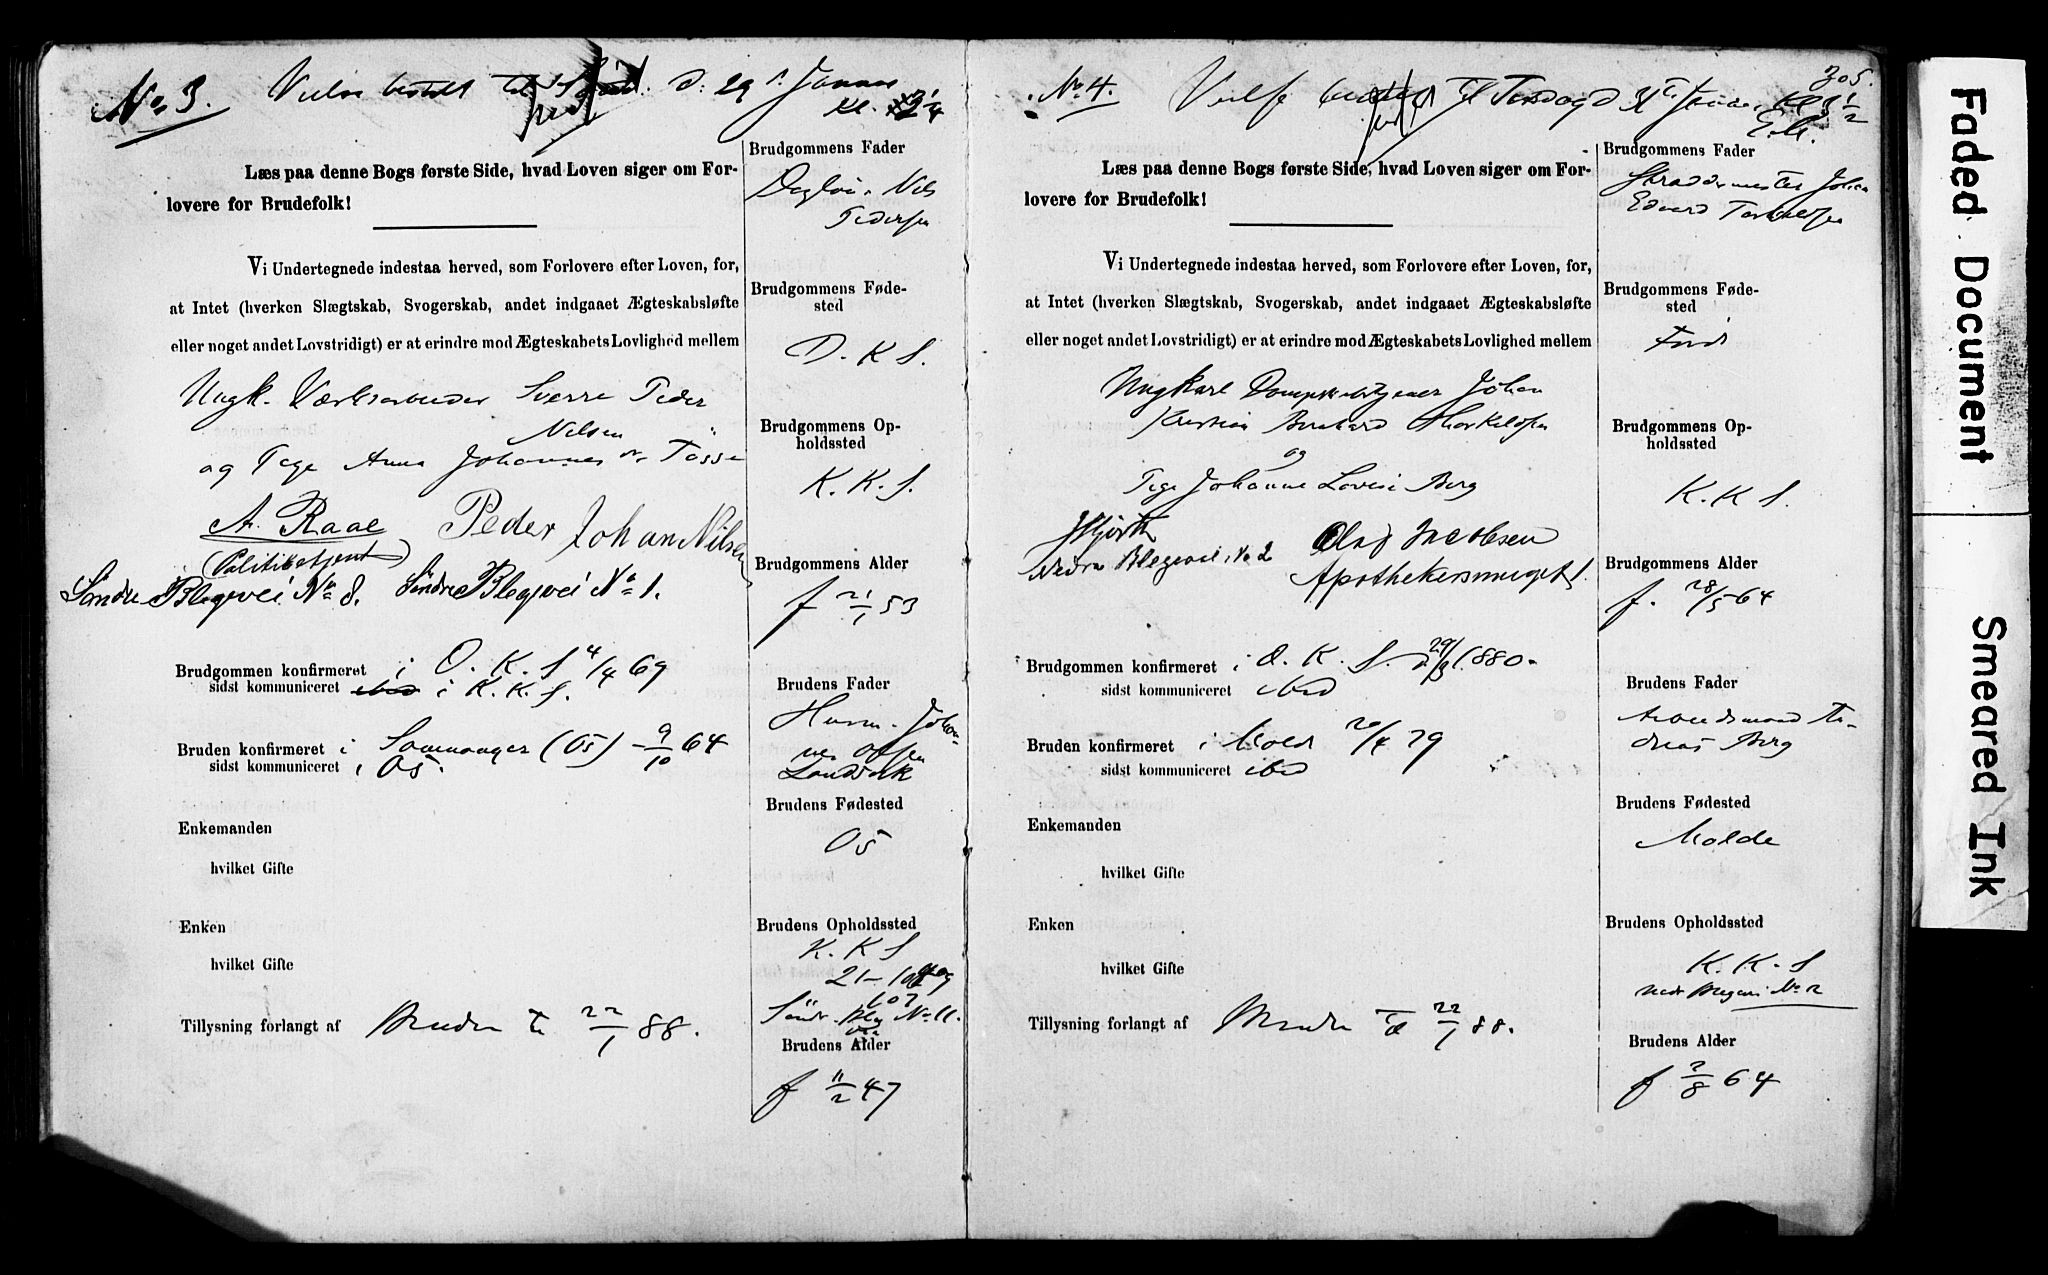 No 3. Vielse bestilt til d. 29 Januar
Kl.
Læs paa denne Bogs første Side, hvad Loven siger om For-
lovere for Brudefolk!
Vi Undertegnede indestaa herved, som Forlovere efter Loven, for,
at Intet (hverken Slægtskab, Svogerskab, andet indgaaet Ægteskabsløfte
eller noget andet Lovstridigt) er at erindre mod Ægteskabets Lovlighed mellem
Ungk. Sverre Peder
Nilsen
og Pige Anna Johannesdr Tøsse
A. Raae Peder Johan Nilsen
(Politibetjent)
Søndre Blegevei No 8. Søndre Blegevei No 1.
Brudgommen konfirmeret i D. K. S 4/4 69
sidst kommuniceret ibid i K. K. S.
Bruden konfirmeret i Samnanger (Os) 9/10 64
sidst kommuniceret i Os.
Enkemanden
hvilket Gifte
Enken
hvilket Gifte
Tillysning forlangt af Bruden 22/1 88.
Brudgommens Fader
Nils
Pedersen
Brudgommens Føde-
sted
D. K S.
Brudgommens Op-
holdssted
K. K. S.
Brudgommens Alder
f 21/1 53
Brudens Fader
Husm. Johan-
nes
Brudens Fødested
Os
Brudens Opholdssted
K. K S
Søndr. Bleg No 11.
vei
Brudens Alder
f 11/2 47
305.
No 4. Vielse til Tirsdag d 31 Kl 3 1/2
Læs paa denne Bogs første Side, hvad Loven siger om For-
lovere for Brudefolk!
Vi Undertegnede indestaa herved, som Forlovere efter Loven, for,
at Intet (hverken Slægtskab, Svogerskab, andet indgaaet Ægteskabsløfte
eller noget andet Lovstridigt) er at erindre mod Ægteskabets Lovlighed mellem
Ungkarl Johan
Kristian Bernhard Thorkildsen
og
Pige Johanne Lovise Berg
Hjorth Olaf Jacobsen
Nedre Blegevei No 2 Apothekersmuget 1.
Brudgommen konfirmeret i D. K. S. 1880.
sidst kommuniceret ibid
Bruden konfirmeret i Molde 20/4 79
sidst kommuniceret ibid
Enkemanden
hvilket Gifte
Enken
hvilket Gifte
Tillysning forlangt af Bruden 22/1 88.
Brudgommens Fader
Skræddermester Johan
Edvard Torkildsen
Brudgommens Føde-
sted
Brudgommens Op-
holdssted
K. K S.
Brudgommens Alder
f. 28/5 64
Brudens Fader
Arbeidsmand An-
dreas Berg
Brudens Fødested
Molde
Brudens Opholdssted
K. K. S
Nedr Blegevei No 2
Brudens Alder
f 2/8 64
Faded Document
Smeared Ink